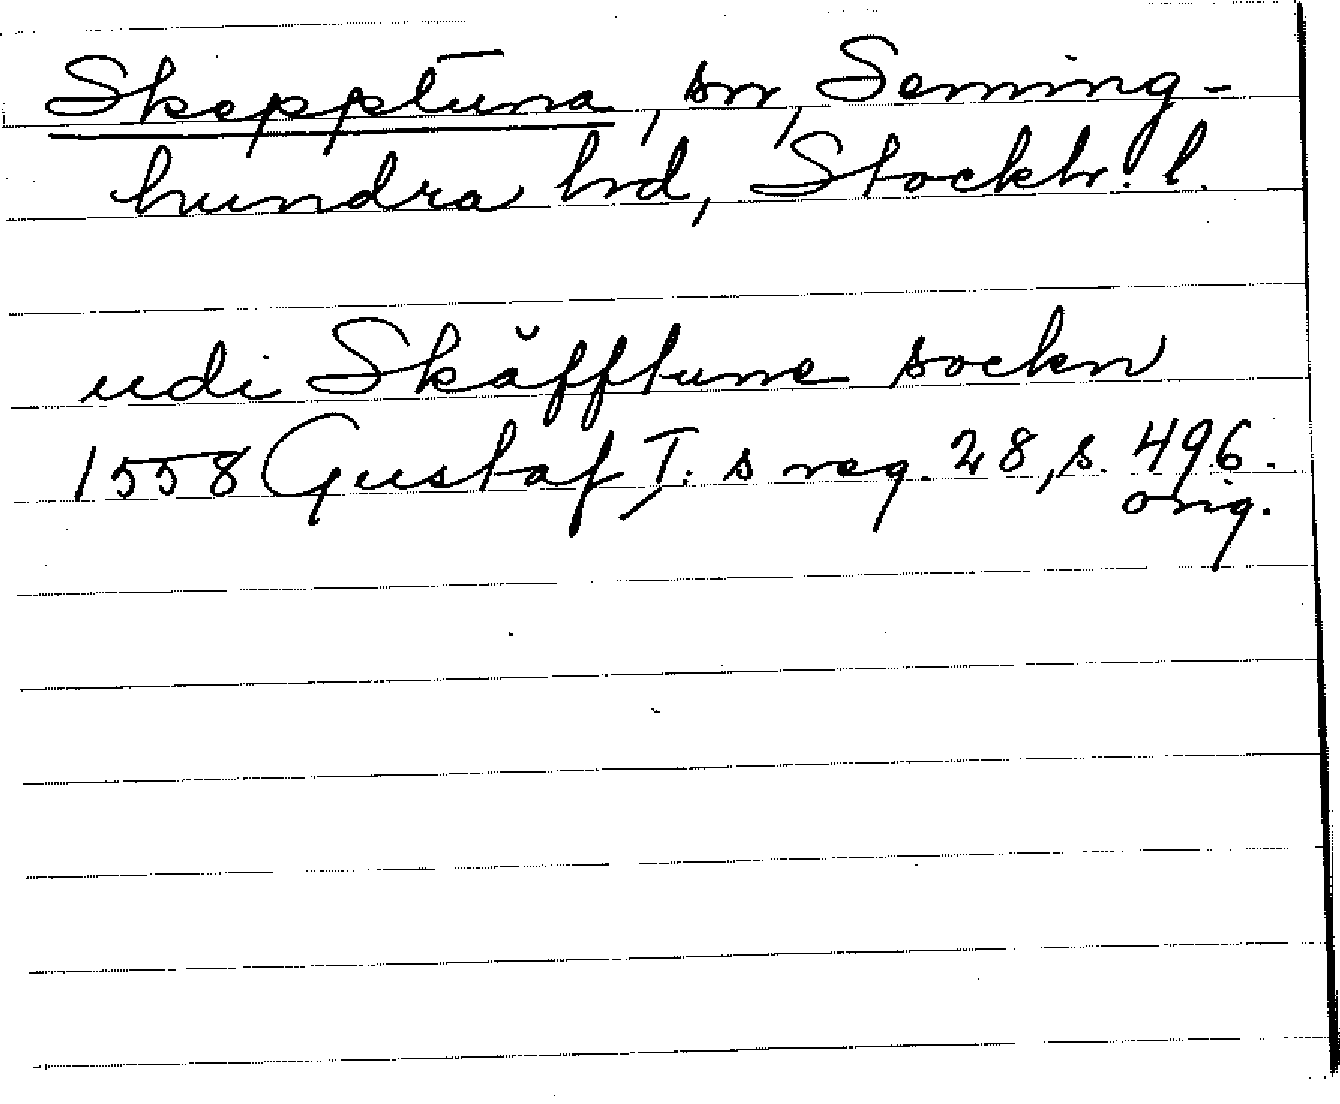 Skepptuna, sn, Seming-
hundra hd, Stockh. l.
udi Skäfftune sockn
1558 Gustaf I:s reg. 28, s. 496.
orig.